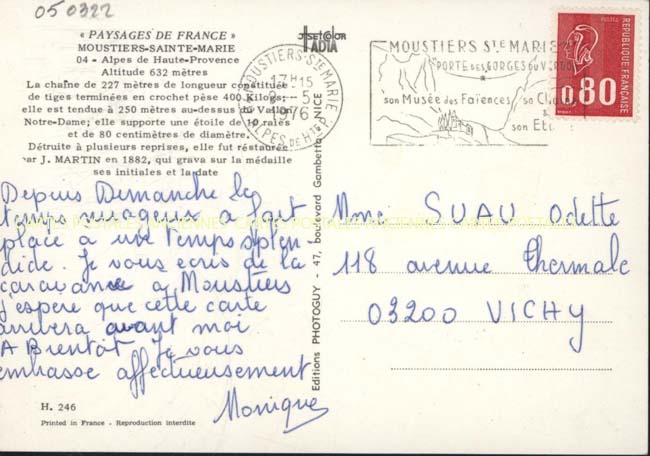 050322
« PAYSAGES DE FRANCE »
MOUSTIERS-SAINTE-MARIE
04 - Alpes de Haute-Provence
Altitude 632 mètres
La chaîne de 227 mètres de longueur constituée
de tiges terminées en crochet pèse 400 Kilogs;
elle est tendue à 250 mètres au-dessus du Vallon
Notre-Dame; elle supporte une étoile de 10 raies
et de 80 centimètres de diamètre.
Détruite à plusieurs reprises, elle fut restaurée
par J. MARTIN en 1882, qui grava sur la médaille
ses initiales et la date
Depuis Dimanche le
temps nuageux a fait
place a une temps splen-
dide. Je vous ecris de la
caravane a Moustiers
j'espere que cette carte
arrivera avant moi
A Bientôt Je vous
embrasse affectueusement
Monique
H. 246
Printed in France - Reproduction interdite
Editions PHOTOGUY - 47, boulevard Gambetta - NICE
MOUSTIERS-STE MARIE
17H15
-5
1976
ALPES DE HTE P.
MOUSTIERS STE MARIE
PORTE DES GORGES DU VERDON
son Musée des Faïences sa
son
POSTES
REPUBLIQUE FRANÇAISE
0,80
Mme SUAU Odette
118 avenue Thermale
03200 VICHY